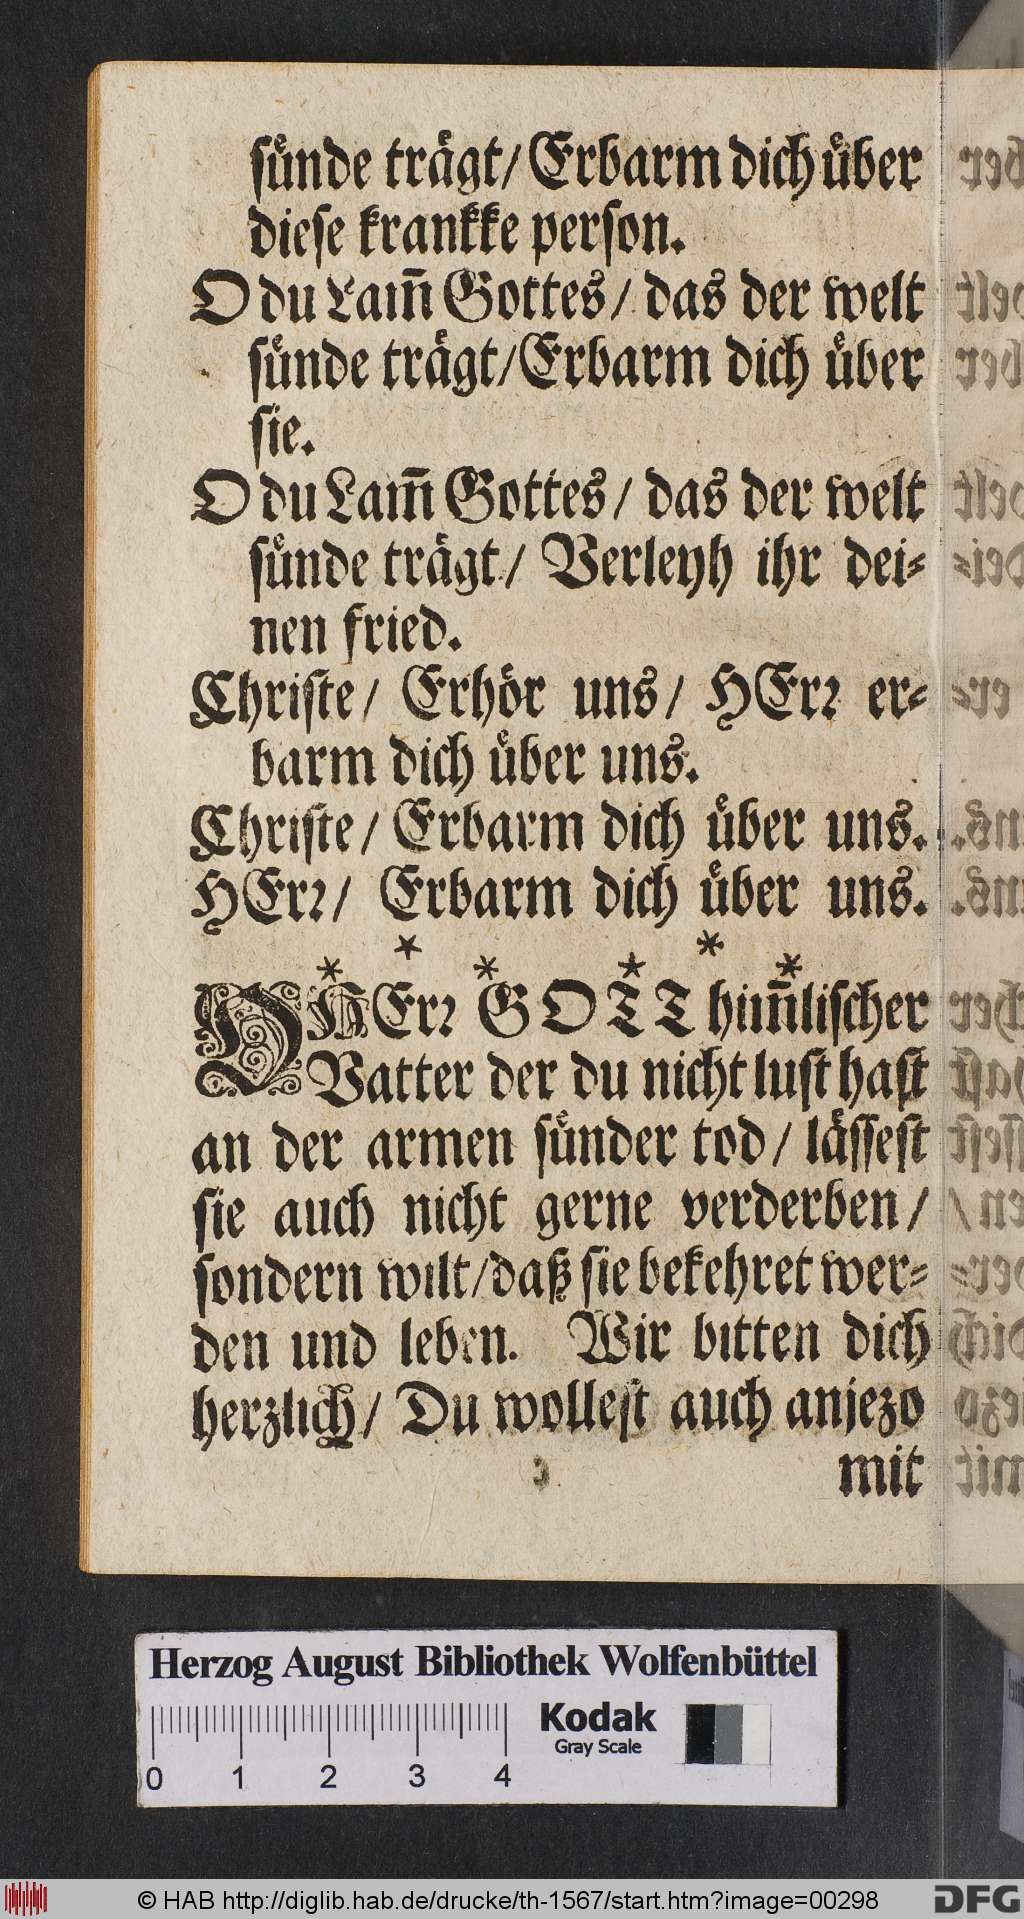 sünde trägt/ Erbarm dich über
diese krankke person.
O du Lam̄ Gottes/ das der welt
sünde trägt/ Erbarm dich über
sie.
O du Lam̄ Gottes/ das der welt
sünde trägt/ Verleyh ihr dei⸗
nen fried.
Christe/ Erhör uns/ HErꝛ er⸗
barm dich über uns.
Christe/ Erbarm dich über uns.
HErꝛ/ Erbarm dich über uns.
* * * * * *
HHErꝛ GOTT him̄lischer
Vatter der du nicht lust hast
an der armen sünder tod/ lässest
sie auch nicht gerne verderben/
sondern wilt/ daß sie bekehret wer⸗
den und leben. Wir bitten dich
herzlich/ Du wollest auch anjezo
mit
Herzog August Bibliothek Wolfenbüttel
Kodak
Gray Scale
0 1 2 3 4
© HAB http://diglib.hab.de/drucke/th-1567/start.htm?image=00298
DFG